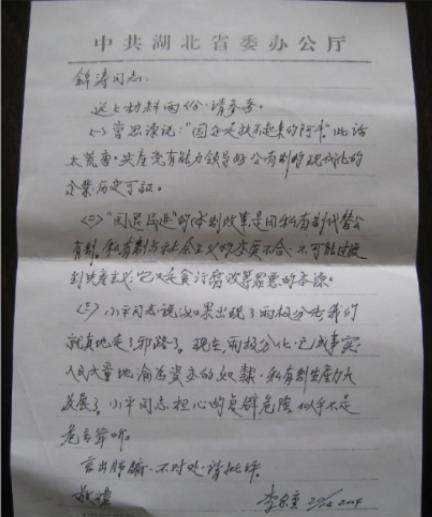 中共湖北省委办公厅
锦涛同志:
送上材料两份,请参考。
(一)官思漠说:"国企是扶不起来的阿斗"此话
太荒唐,共产党有能力领导好公有制的现代化的
企业,历史可证。
(二)"国退民进"的体制改革,是用私有制代替公
有制,私有制与社会主义的本质不合,不可能过渡
到共产主义,它又是贪污腐败等罪恶的本源。
(三)小平同志说,如果出现了两极分化,我们
就真地走了邪路了。现在,两极分化,已成事实,
人民大量地沦为资本的奴隶,私有制生产力大
发展了,小平同志担心的复辟危险似乎不是
危言耸听。
言出肺腑,不对处,请批评。
敬礼
李
2004